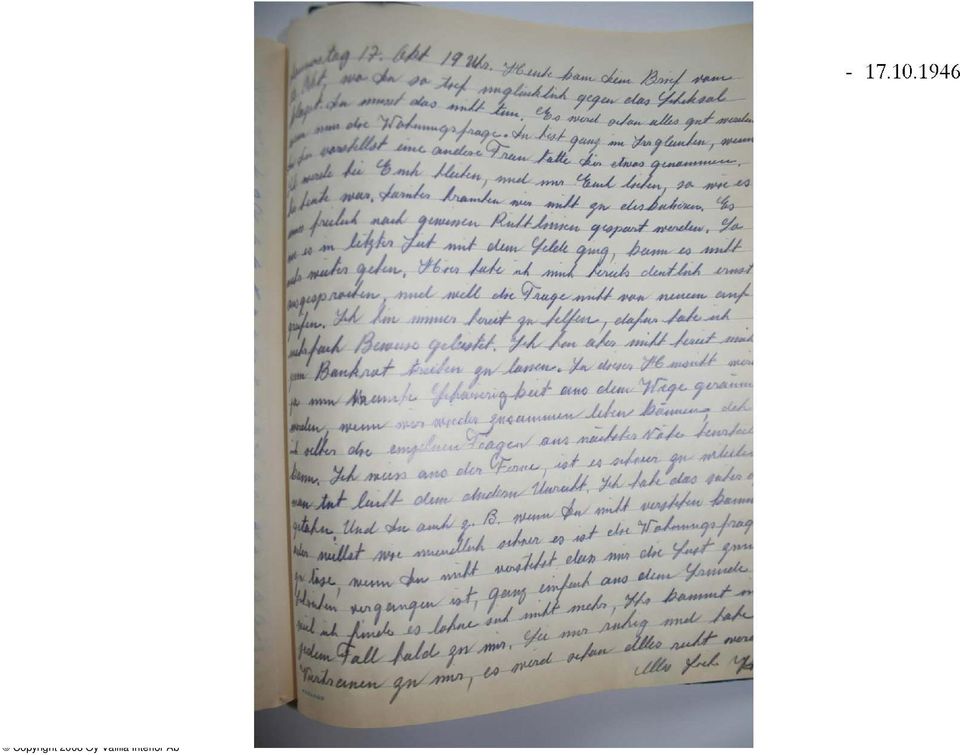 Donnerstag 17. Okt 19 Uhr. Heute kam Dein Brief vom
Okt, wo Du so tief unglücklich gegen das Schicksal
klagst. Du musst das nicht tun. Es wird schon alles gut werden
nun die Wohnungsfrage. Du bist ganz im Irrglauben, wenn
Du vorstellst eine andere Frau hätte Dir etwas genommen.
Ich werde bei Euch bleiben, und nur Euch lieben, so wie es
bis heute war. Darüber brauchen wir nicht zu diskutieren. Es
muss freilich nach gewissen Richtlinien gespart werden. So
wie es in letzter Zeit mit dem Gelde ging, kann es nicht
mehr weiter gehen. Hier habe ich mich bereits deutlich ernst
ausgesprochen, und will die Frage nicht von neuem auf
greifen. Ich bin immer bereit zu helfen, dafür habe ich
mehrfach Beweise geleistet. Ich bin aber nicht bereit mich
zum Bankrot treiben zu lassen. In dieser Hinsicht wird
ja nun manche Schwierigkeit aus dem Wege geräumt
werden, wenn wir wieder zusammen leben können,
ich selber die einzelnen Fragen aus nächster Nähe
kann. Ich weiss aus der Ferne, ist es schwer zu
man tut leicht dem andern Unrecht. Ich habe das sicher
getan. Und Du auch z. B. wenn Du nicht verstehen kannst
oder willst wie unendlich schwer es ist die Wohnungsfrage
zu lösen, wenn Du nicht verstehst dass mir die Lust zum
vergangen ist, ganz einfach aus dem Grunde
weil ich finde es lohne sich nicht mehr, Ihr kommt in
jedem Fall bald zu mir. Sei nur ruhig und habe
Vertrauen zu mir, es wird schon alles recht werden
Alles Liebe
- 17.10.1946
© Copyright 2008 Oy Vallila Interior Ab